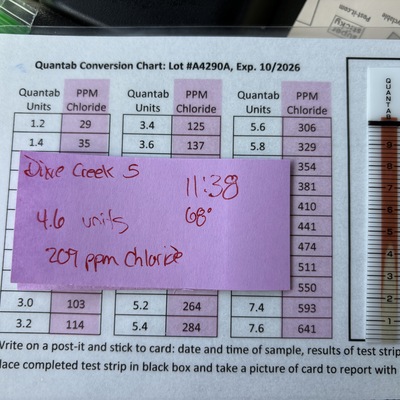 Post-it.com
Quantab Conversion Chart: Lot #A4290A, Exp. 10/2026
Quantab Units PPM Chloride Quantab Units PPM Chloride Quantab Units PPM Chloride
1.2 29 3.4 125 5.6 306
1.4 35 3.6 137 5.8 329
354
381
410
441
474
511
550
Dixie Creek S
11:38
4.6 units 68°
209 ppm Chloride
3.0 103 5.2 264 7.4 593
3.2 114 5.4 284 7.6 641
Write on a post-it and stick to card: date and time of sample, results of test strip
lace completed test strip in black box and take a picture of card to report with
QUANTAB
9
8
7
6
5
4
3
2
1